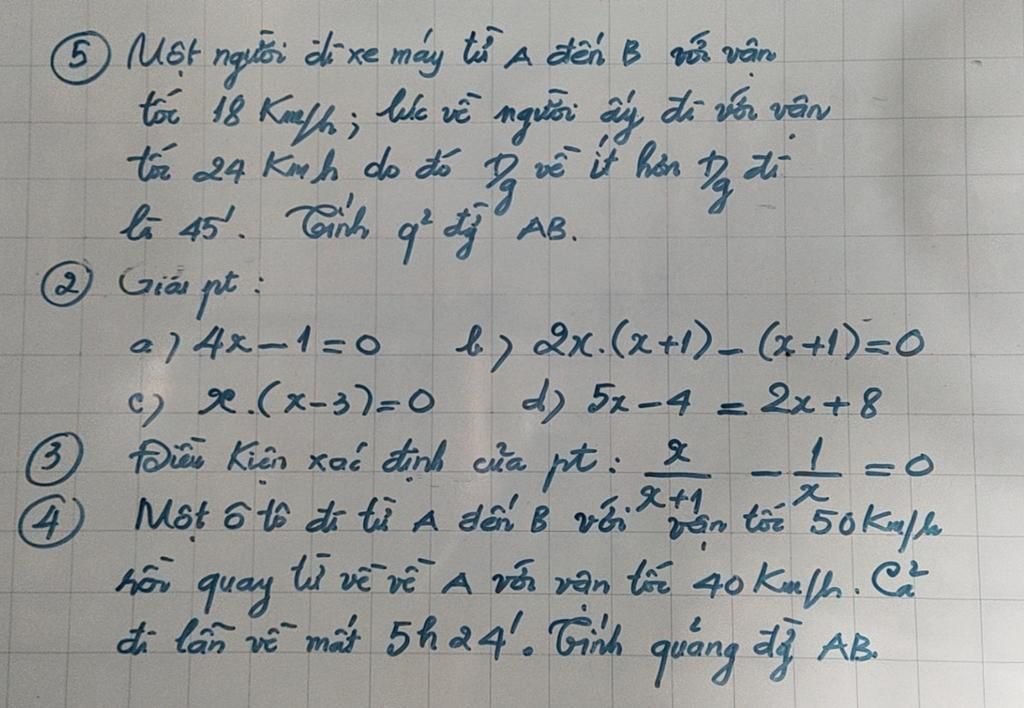 ⑤ Một người đi xe máy từ A đến B với vận
tốc 18 Km/h; lúc về người ấy đi với vận
tốc 24 Km h do đó t/g về ít hơn t/g đi
là 45'. Tính q² đg AB.
② Giải pt:
a) 4x - 1 = 0 b) 2x.(x+1) - (x+1) = 0
c) x.(x-3) = 0 d) 5x - 4 = 2x + 8
③ Điều Kiện xác định của pt: x/(x+1) - 1/x = 0
④ Một ô tô đi từ A đến B với vận tốc 50 Km/h
rồi quay từ về về A với vận tốc 40 Km/h. Cả
đi lẫn về mất 5h24'. Tính quảng đg AB.